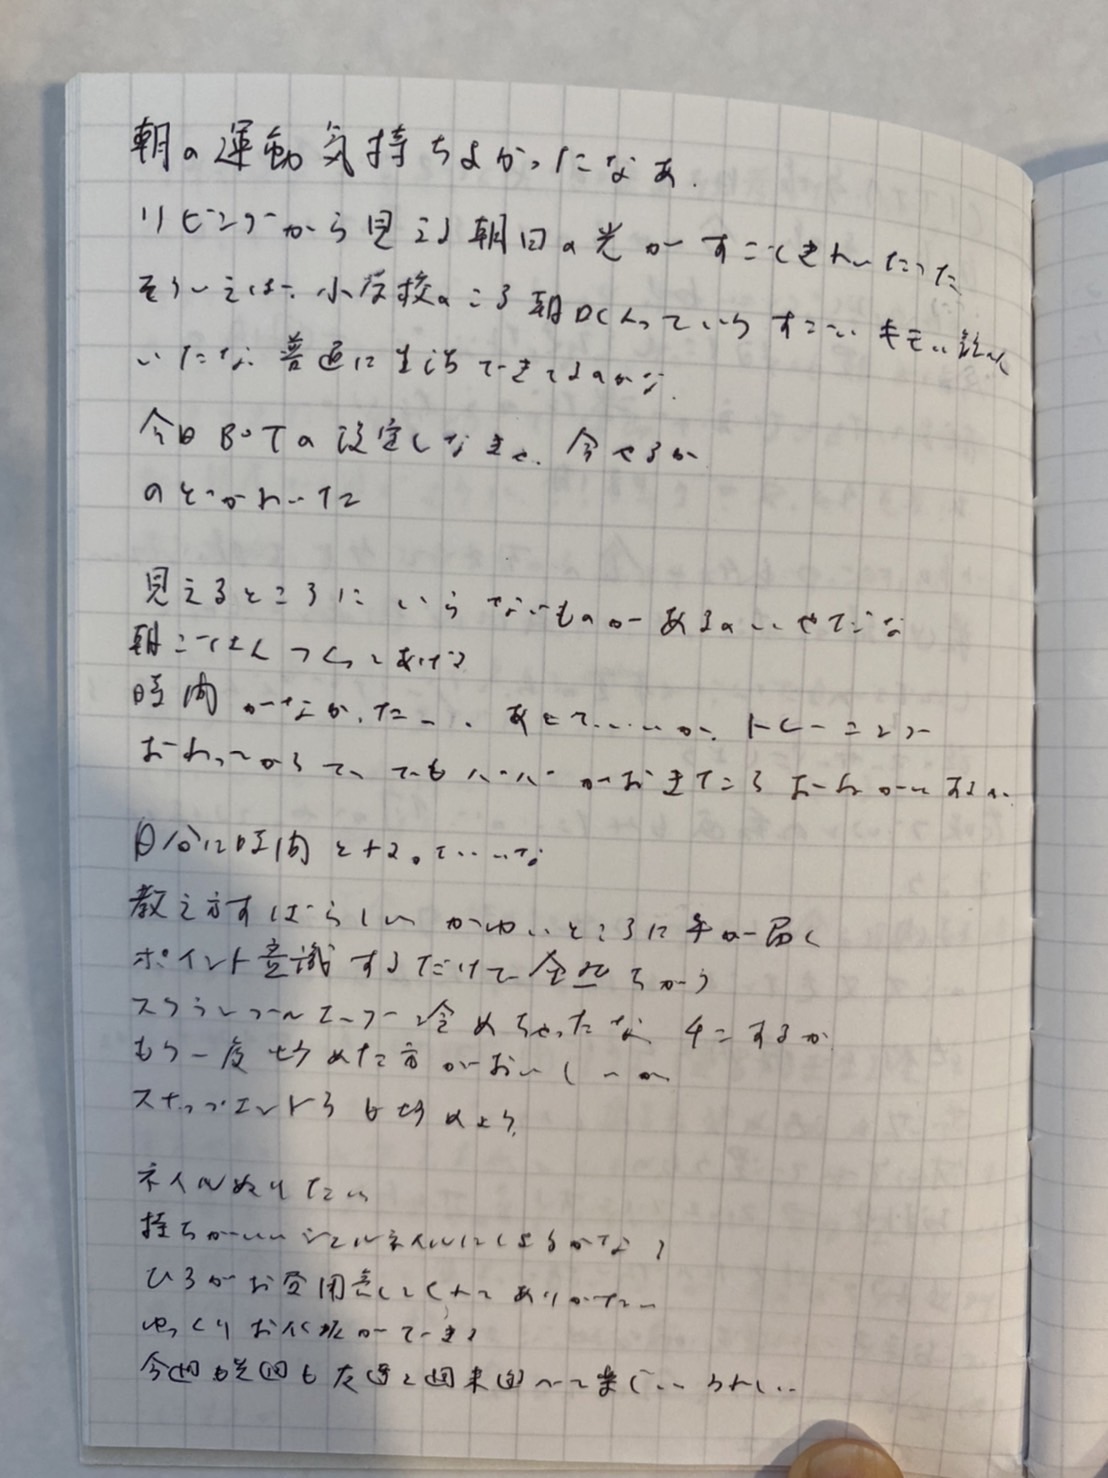 朝の運動気持ちよかったなぁ.
リビングから見える朝日の光がすごくきれいだった
そういえば、小学校のころ朝 っていう すごい
いたな 普通に生活できてるのかな.
今日BOTの設定しなきゃ. 今やるか
のどかわいた
見えるところにいらないものがあるのいやだな
朝ごはんつくってあげる
時間がなかった 、あとでいいか、トレーニング
おわってからで、でもパパがおきてころ
自分に時間 いいな
教え方すばらしい かゆいところに手が届く
ポイント意識するだけで全然ちがう
スクランブルエッグ冷めちゃったな チンするか
もう一度 めた方がおいしい
スナップエンドウも めよう.
ネイルぬりたい
持ちがいいジェルネイルにしようかなぁ
ひろがお昼用意してくれてありがたい
ゆっくりお化粧ができる
今週も 週も友達と 楽しい うれしい